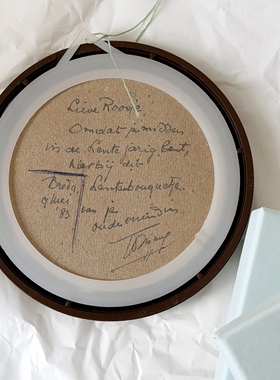 Lieve Roosje,
Omdat je midden
in de Lente jarig bent,
hierbij dit
Lentebouquetje
van je
oude vriendin,
Breda,
Mei
'83